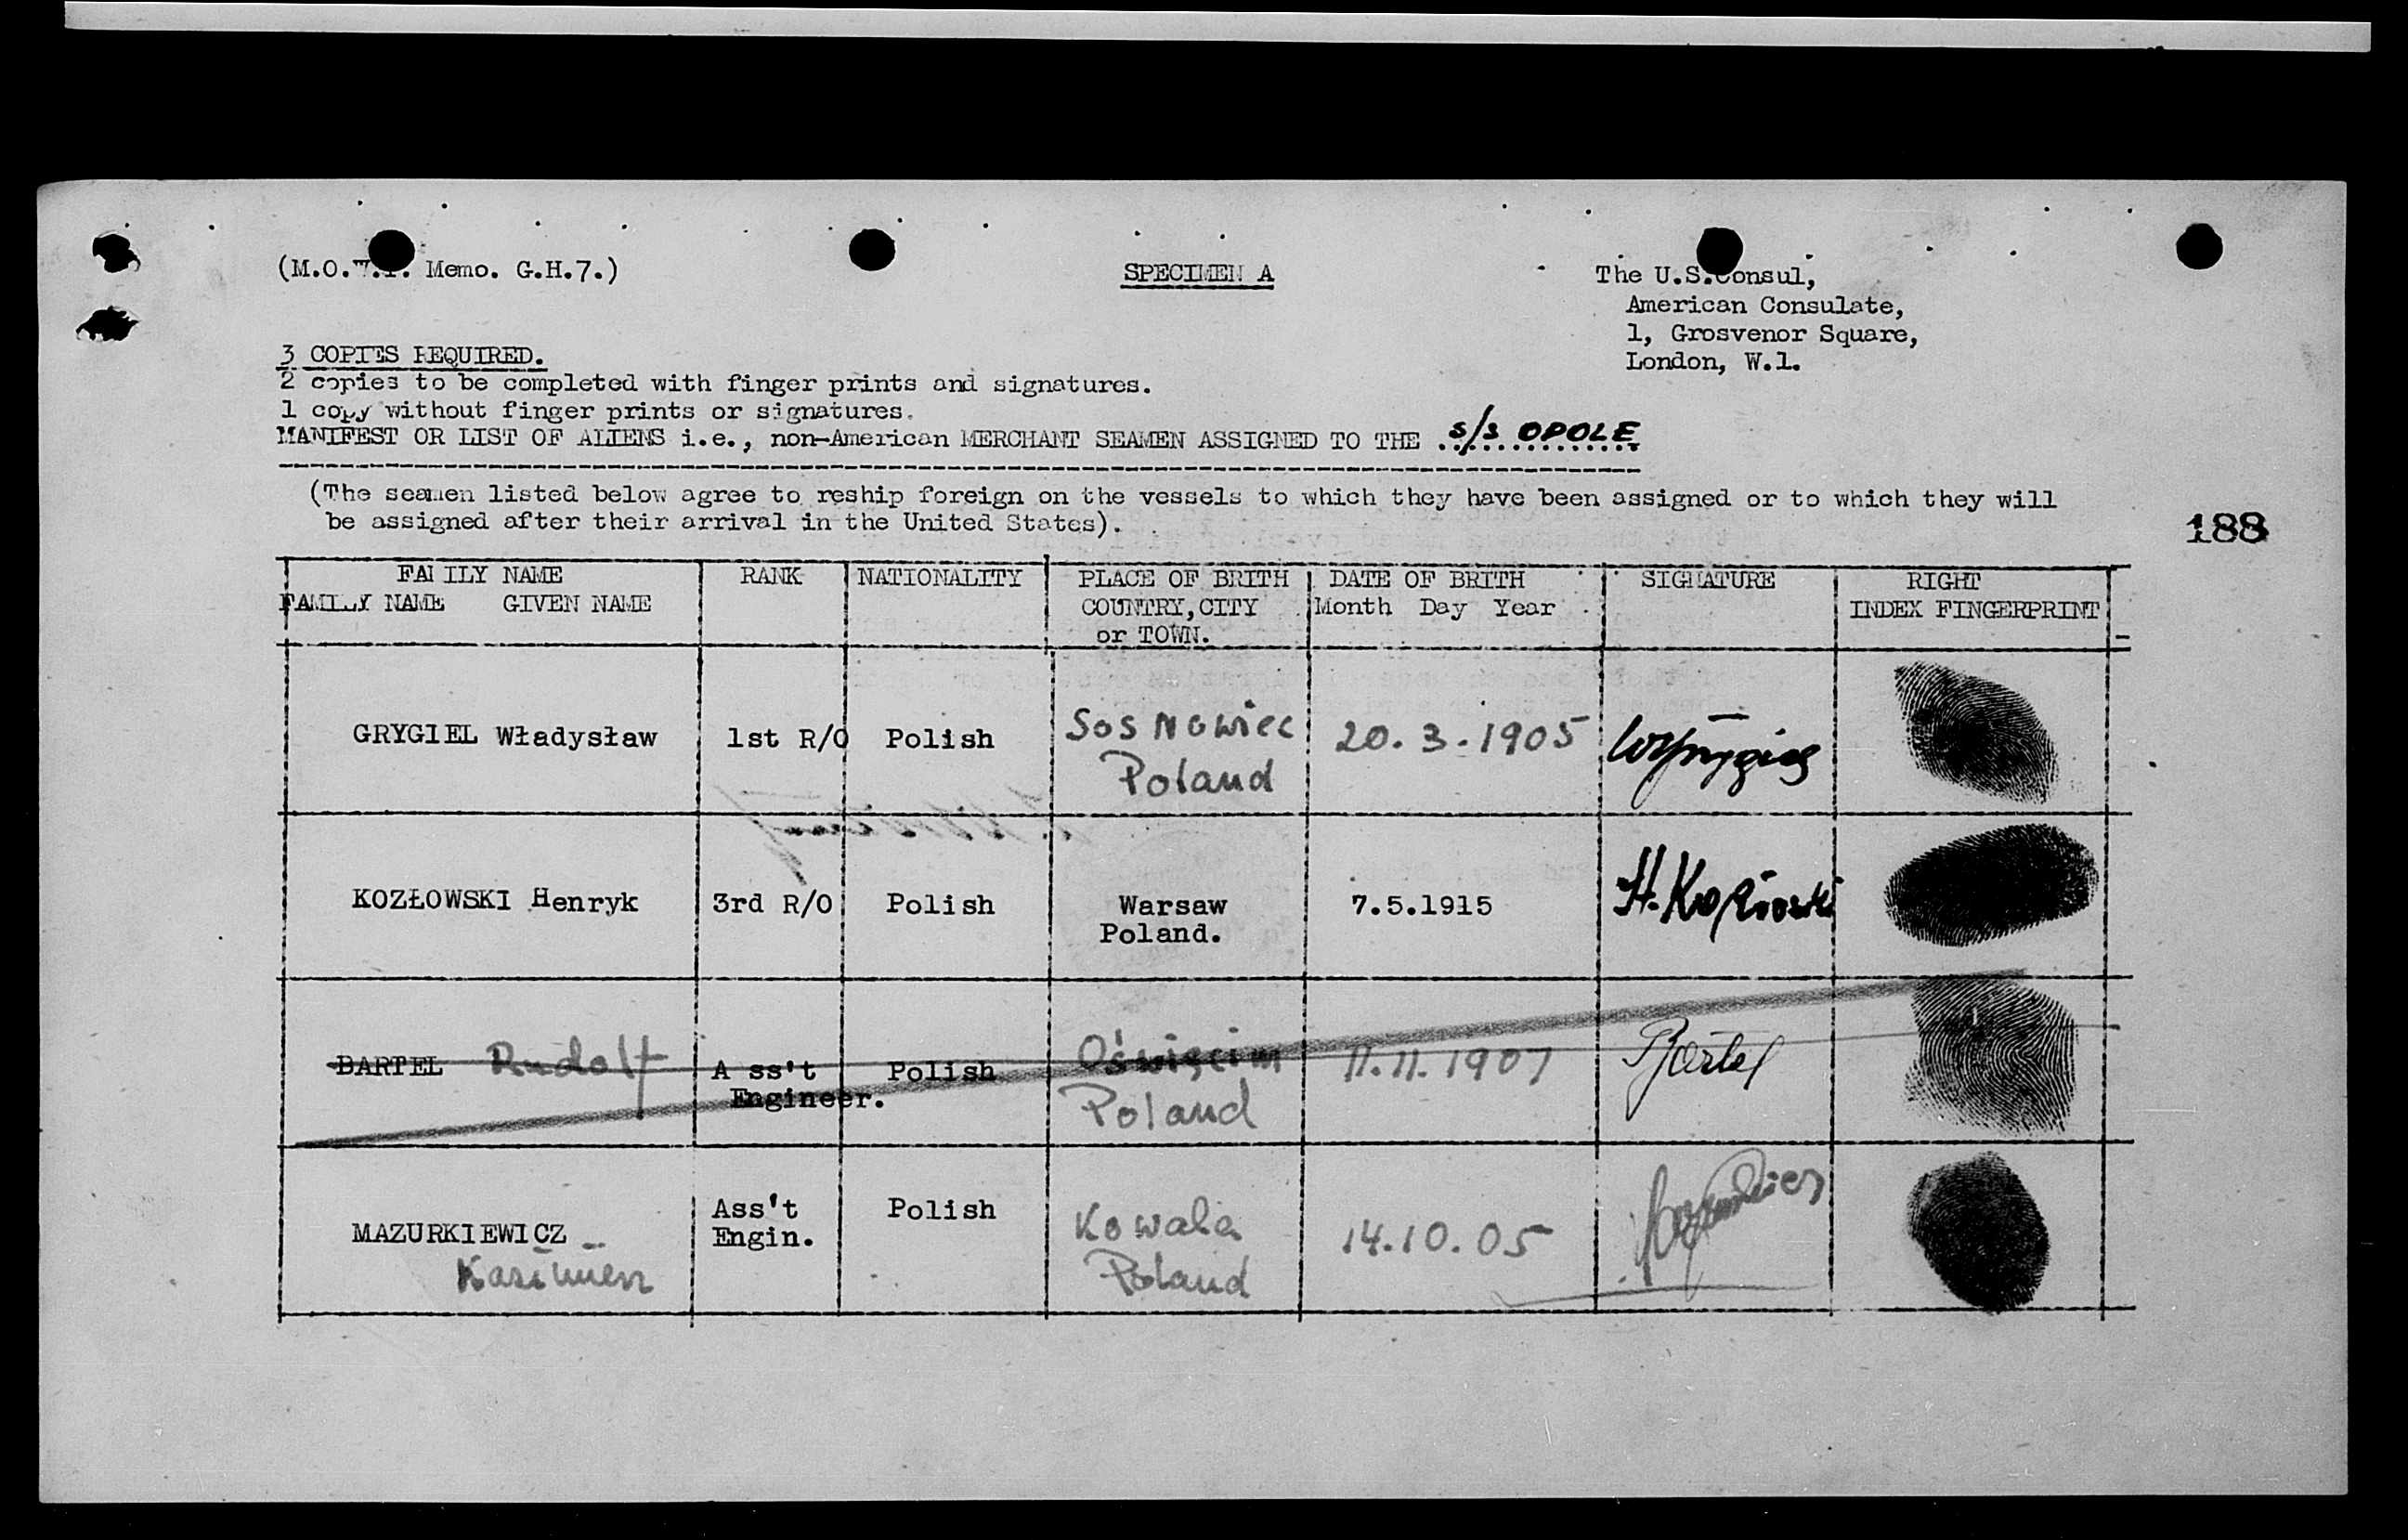 (M.O. Memo. G.H.7.)
SPECIMEN A
The U.S.Consul,
American Consulate,
1, Grosvenor Square,
London, W.1.
3 COPIES REQUIRED.
2 copies to be completed with finger prints and signatures.
1 copy without finger prints or signatures.
MANIFEST OR LIST OF ALIENS i.e., non-American MERCHANT SEAMEN ASSIGNED TO THE s/s OPOLE
(The seamen listed below agree to reship foreign on the vessels to which they have been assigned or to which they will
be assigned after their arrival in the United States).
188
FAMILY NAME RANK NATIONALITY PLACE OF BRITH DATE OF BRITH SIGNATURE RIGHT
FAMILY NAME GIVEN NAME COUNTRY,CITY Month Day Year INDEX FINGERPRINT
or TOWN.
GRYGIEL Władysław 1st R/O Polish Sosnowiec 20.3.1905
Poland
KOZŁOWSKI Henryk 3rd R/O Polish Warsaw 7.5.1915 H. Kozłowski
Poland.
BARTEL Rudolf A ss't Polish Oświęcim 11.11.1907 Bartel
Engineer. Poland
MAZURKIEWICZ Ass't Polish Kowala 14.10.05
Kazimierz Engin. Poland